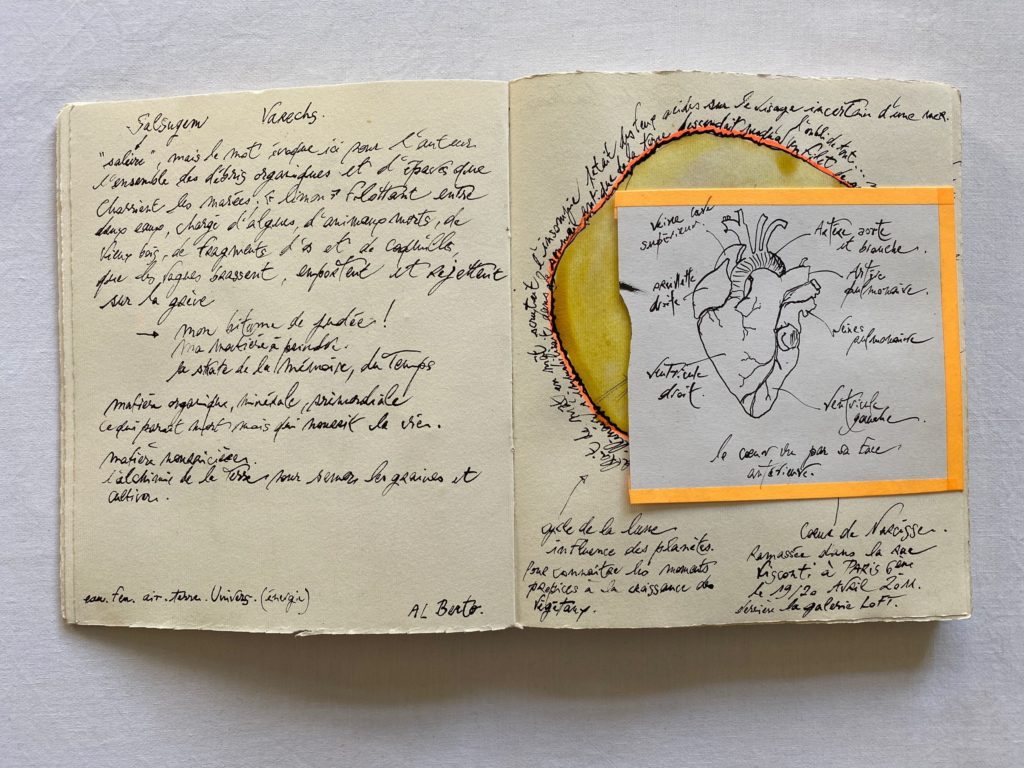 Salsugem Varechs.
"salève", mais le mot évoque ici pour l'auteur
l'ensemble des débris organiques et d'épaves que
charrient les marées. Le limon flottant entre
deux eaux, chargé d'algues, d'animaux morts, de
vieux bois, de fragments d'os et de coquilles
que des vagues brassent, emportent et rejettent
sur la grève
→ mon bitume de Judée!
ma matière à peindre.
la strate de la mémoire, du Temps
matière organique, minérale, primordiale
ce qui parait mort mais qui nourrit la vie.
matière nourricière.
l'alchimie de la Terre pour semer les graines et
cultiver.
eau. feu. air. terre. Univers. (énergie)
AL Berto.
acides sur le visage incertain d'une mer.
l'insomnie
Veine cave
supérieure
Artère aorte
et branche.
oreillette
droite
Artère
pulmonaire.
Veines
pulmonaire
ventricule
droit.
Ventricule
gauche
le cœur vu par sa face
antérieure.
cycle de la lune
influence des planètes.
Pour connaitre les moments
propices à la croissance des
végétaux.
Cœur de Narcisse.
Ramassée dans la rue
Visconti à PARIS 6ème
Le 19/20 Avril 2011.
derrière la galerie LOFT.